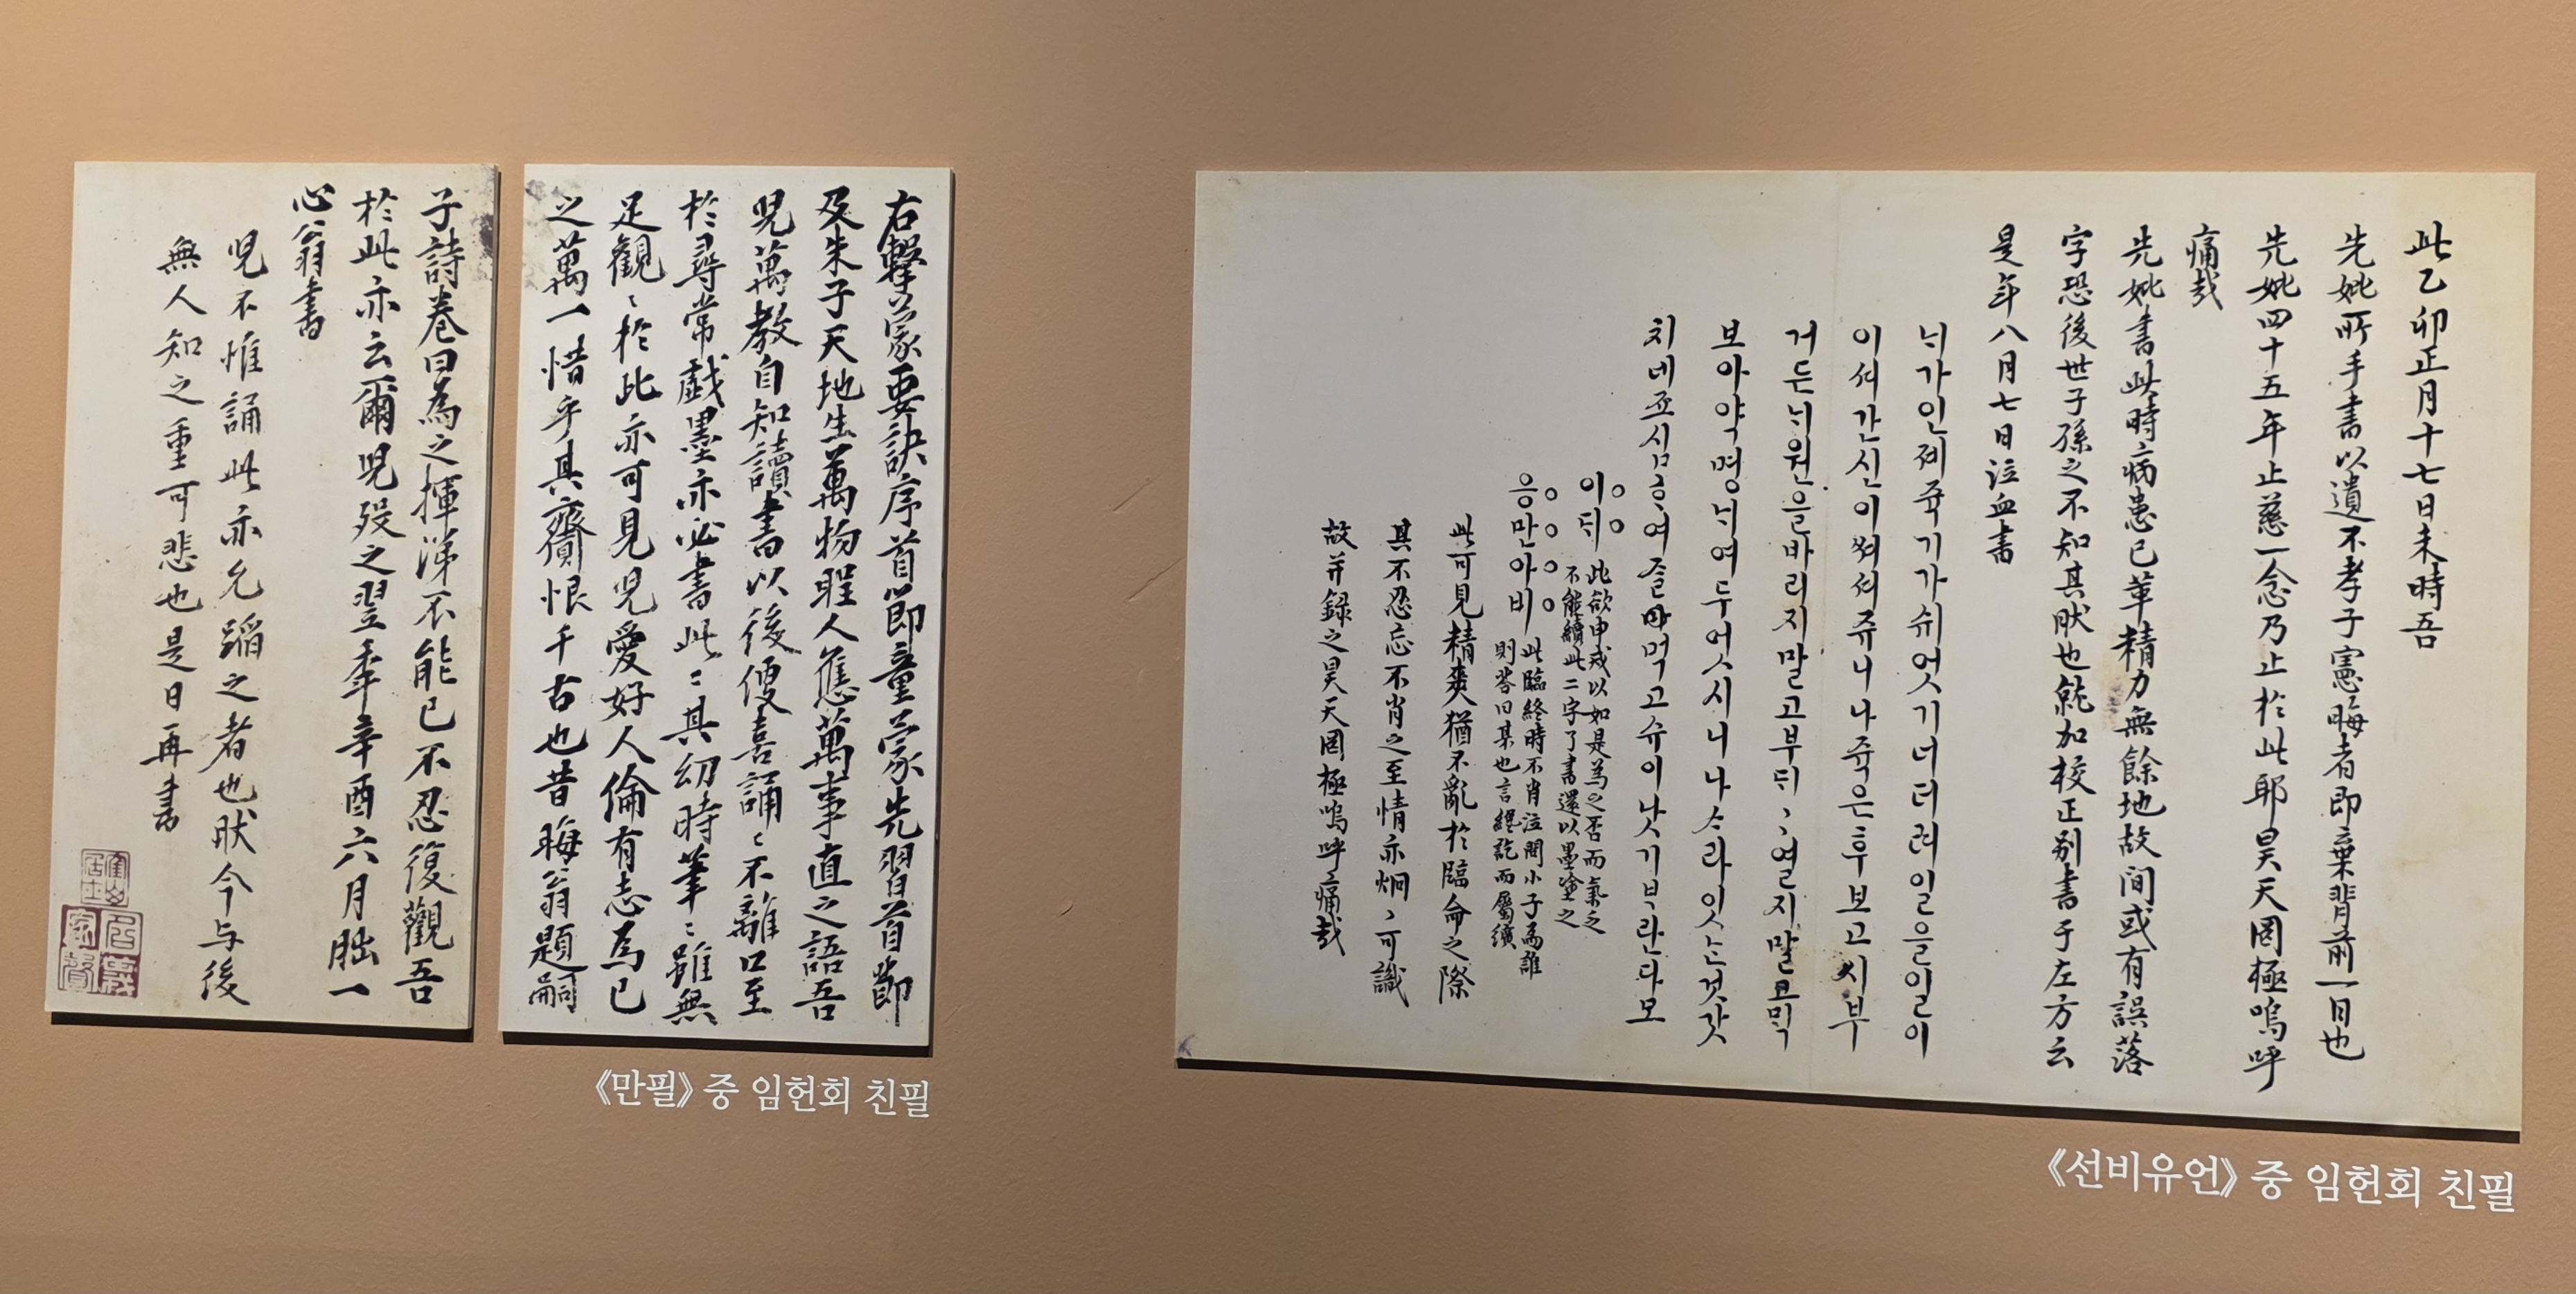 此乙卯正月十七日未時吾
先妣所手書以遺不孝子憲晦者即棄背前一日也
先妣四十五年止慈一念乃止於此耶昊天罔極嗚呼
痛哉
先妣書此時病患已革精力無餘地故間或有誤落
字恐後世子孫之不知其然也玆加校正別書于左方云
是年八月七日泣血書
늬가인졔쥭기가쉬엇기너더려일을일이
이셔간신이쎠셔쥬니나쥭은후보고시부
거든늬원을바리지말고부듸〻열지말고믹
보아약명늬여두어스시니나스라잇는것갓
치네죠심ᄒᆞ여즐마먹고슈이낫기ᄇᆞ란다모
이듸 此欲申戒以如是爲之否而氣乏
不能續此二字了書還以墨塗之
응만아비 此臨終時不肖泣問小子爲誰
則答曰某也言纔訖而屬纊
此可見精爽猶不亂於臨命之際
其不忍忘不肖之至情亦炯〻可識
故幷錄之昊天罔極嗚呼痛哉
《선비유언》 중 임헌회 친필
右擊蒙要訣序首節童蒙先習首節
及朱子天地生萬物聖人應萬事直之語吾
兒萬敎自知讀書以後便喜誦〻不離口至
於尋常戱墨亦必書此〻其幼時筆〻雖無
足觀〻於此亦可見兒愛好人倫有志爲己
之萬一惜乎其齎恨千古也昔晦翁題嗣
子詩卷曰爲之揮涕不能已不忍復觀吾
於此亦云爾兒歿之翌年辛酉六月朏一
心翁書
兒不惟誦此亦允蹈之者也然今与後
無人知之重可悲也是日再書
《만필》 중 임헌회 친필